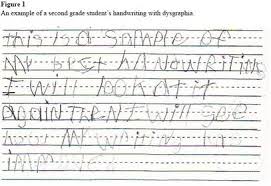 Figure 1
An example of a second grade student's handwriting with dysgraphia.
this is a SAMple of
My best HANdwRITING
I will look at it
AGAIN THEN I will see
how MY WRITING